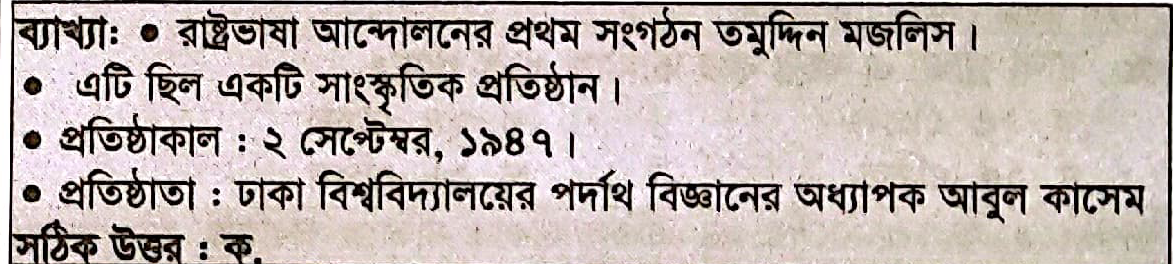 ব্যাখ্যা: ● রাষ্ট্রভাষা আন্দোলনের প্রথম সংগঠন তমুদ্দিন মজলিস।
● এটি ছিল একটি সাংস্কৃতিক প্রতিষ্ঠান।
● প্রতিষ্ঠাকাল : ২ সেপ্টেম্বর, ১৯৪৭।
● প্রতিষ্ঠাতা : ঢাকা বিশ্ববিদ্যালয়ের পর্দাথ বিজ্ঞানের অধ্যাপক আবুল কাসেম
সঠিক উত্তর : ক.